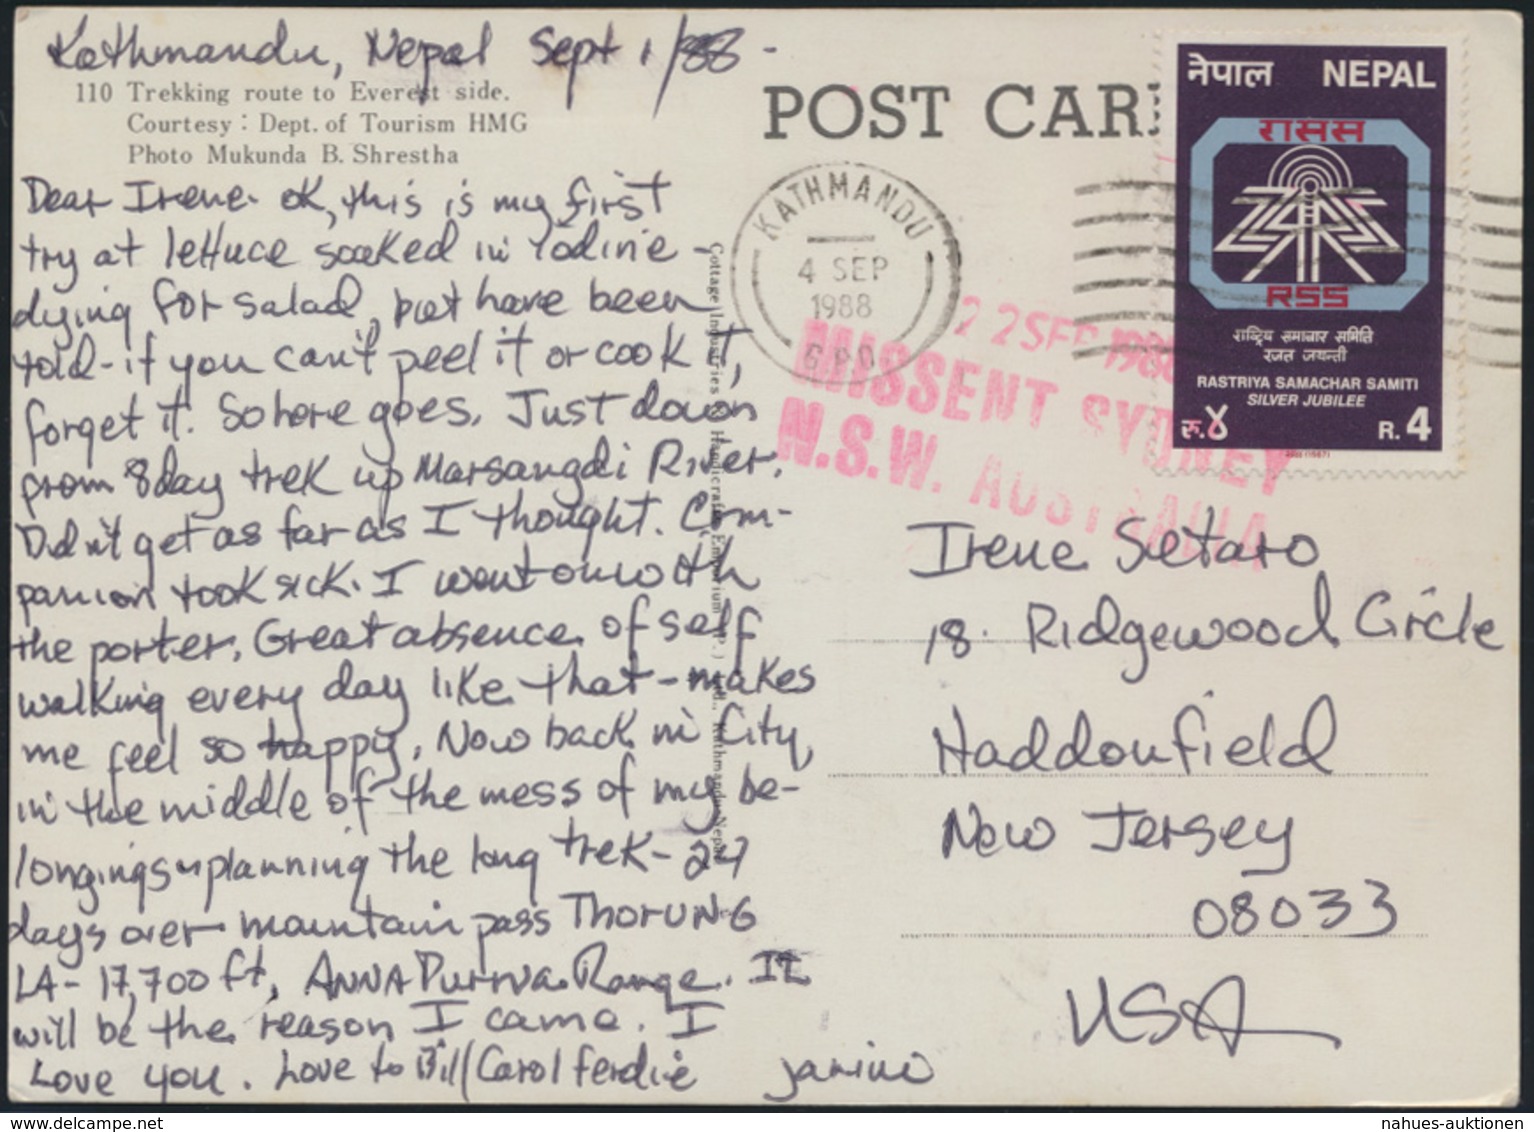 Kathmandu, Nepal Sept 1/88 -
110 Trekking route to Everest side.
Courtesy : Dept. of Tourism HMG
Photo Mukunda B. Shrestha
Dear Irene - OK, this is my first
try at lettuce soaked in Iodine -
dying for salad, but have been
told - if you can't peel it or cook it,
forget it. So here goes. Just down
from 8 day trek up Marsangdi River.
Didn't get as far as I thought. Com-
panion took sick. I went on with
the porter. Great absence of self
walking every day like that - makes
me feel so happy. Now back in City,
in the middle of the mess of my be-
longings planning the long trek - 24
days over mountain pass THORUNG
LA - 17,700 ft, ANNAPurna Range. It
will be the reason I came. I
Love you. Love to Bill/Carol Ferdie Janine
Cottage Industries Handicrafts Emporium Kathmandu Nepal
POST CAR
KATHMANDU
4 SEP
1988
G.P.O.
22 SEP 1988
MISSENT SYDNEY
N.S.W. AUSTRALIA
नेपाल NEPAL
रासस
RSS
राष्ट्रिय समाचार समिति
रजत जयन्ती
RASTRIYA SAMACHAR SAMITI
SILVER JUBILEE
रु.४ R.4
Irene Setaro
18 Ridgewood Circle
Haddonfield
New Jersey
08033
USA
nahues-auktionen